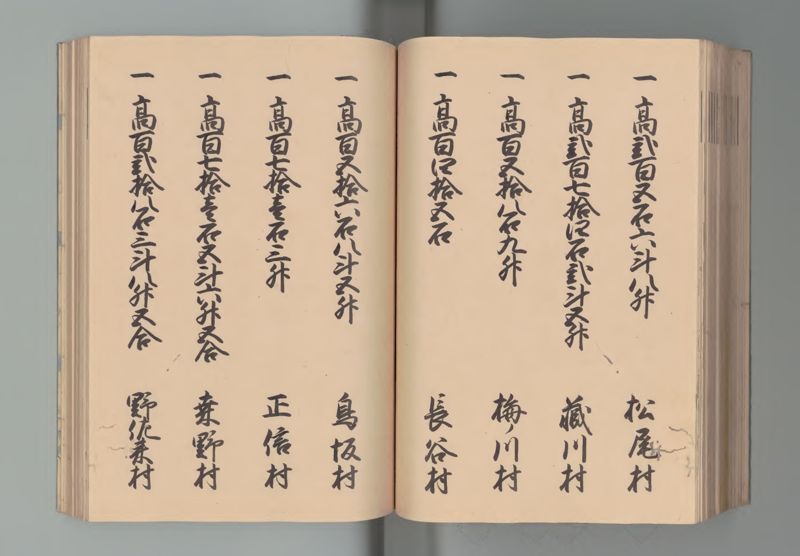 一 高弐百五石六斗八舛 松尾村
一 高弐百七拾四石弐斗五舛 蔵川村
一 高百五拾八石九舛 梅ノ川村
一 高百四拾五石 長谷村
一 高百五拾六石八斗五舛 鳥坂村
一 高百七拾壱石三舛 正信村
一 高百七拾壱石五斗六舛五合 桒野村
一 高百弐拾八石三斗八舛五合 野佐来村